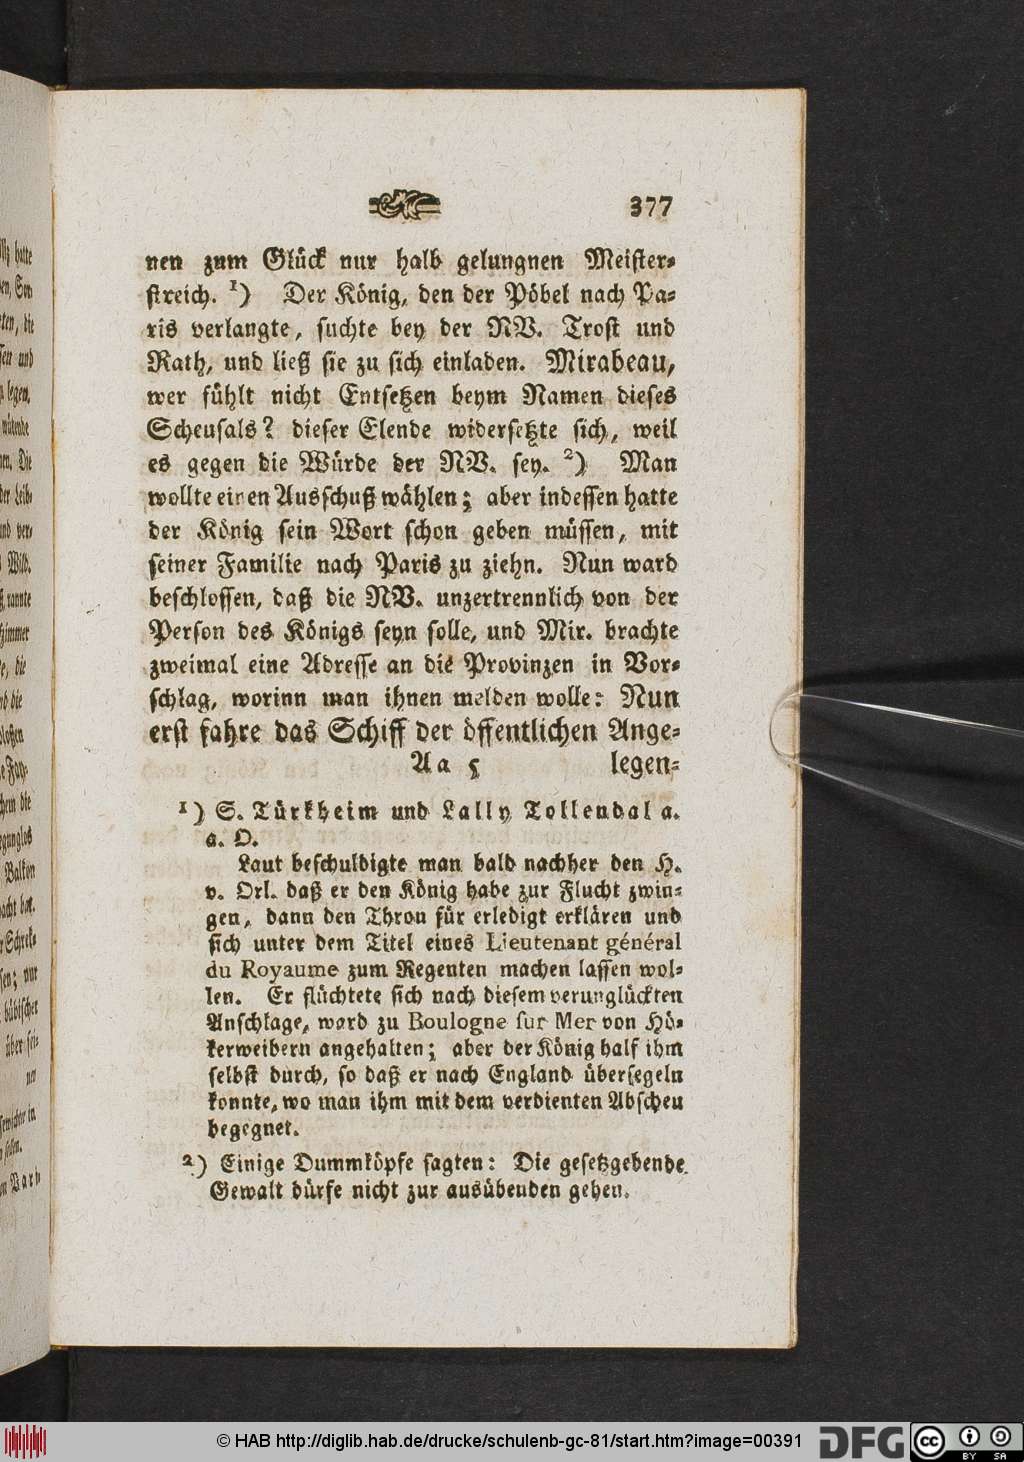 377
nen zum Glück nur halb gelungnen Meister-
streich. 1) Der König, den der Pöbel nach Pa-
ris verlangte, suchte bey der NV. Trost und
Rath, und ließ sie zu sich einladen. Mirabeau,
wer fühlt nicht Entsetzen beym Namen dieses
Scheusals? dieser Elende widersetzte sich, weil
es gegen die Würde der NV. sey. 2) Man
wollte einen Ausschuß wählen; aber indessen hatte
der König sein Wort schon geben müssen, mit
seiner Familie nach Paris zu ziehn. Nun ward
beschlossen, daß die NV. unzertrennlich von der
Person des Königs seyn solle, und Mir. brachte
zweimal eine Adresse an die Provinzen in Vor-
schlag, worinn man ihnen melden wolle: Nun
erst fahre das Schiff der öffentlichen Ange-
Aa 5 legen-
1) S. Türkheim und Lally Tollendal a.
a. O.
Laut beschuldigte man bald nachher den H.
v. Orl. daß er den König habe zur Flucht zwin-
gen, dann den Thron für erledigt erklären und
sich unter dem Titel eines Lieutenant général
du Royaume zum Regenten machen lassen wol-
len. Er flüchtete sich nach diesem verunglückten
Anschlage, ward zu Boulogne sur Mer von Hö-
kerweibern angehalten; aber der König half ihm
selbst durch, so daß er nach England übersegeln
konnte, wo man ihm mit dem verdienten Abscheu
begegnet.
2) Einige Dummköpfe sagten: Die gesetzgebende
Gewalt dürfe nicht zur ausübenden gehen.
© HAB http://diglib.hab.de/drucke/schulenb-gc-81/start.htm?image=00391
DFG
cc
BY SA